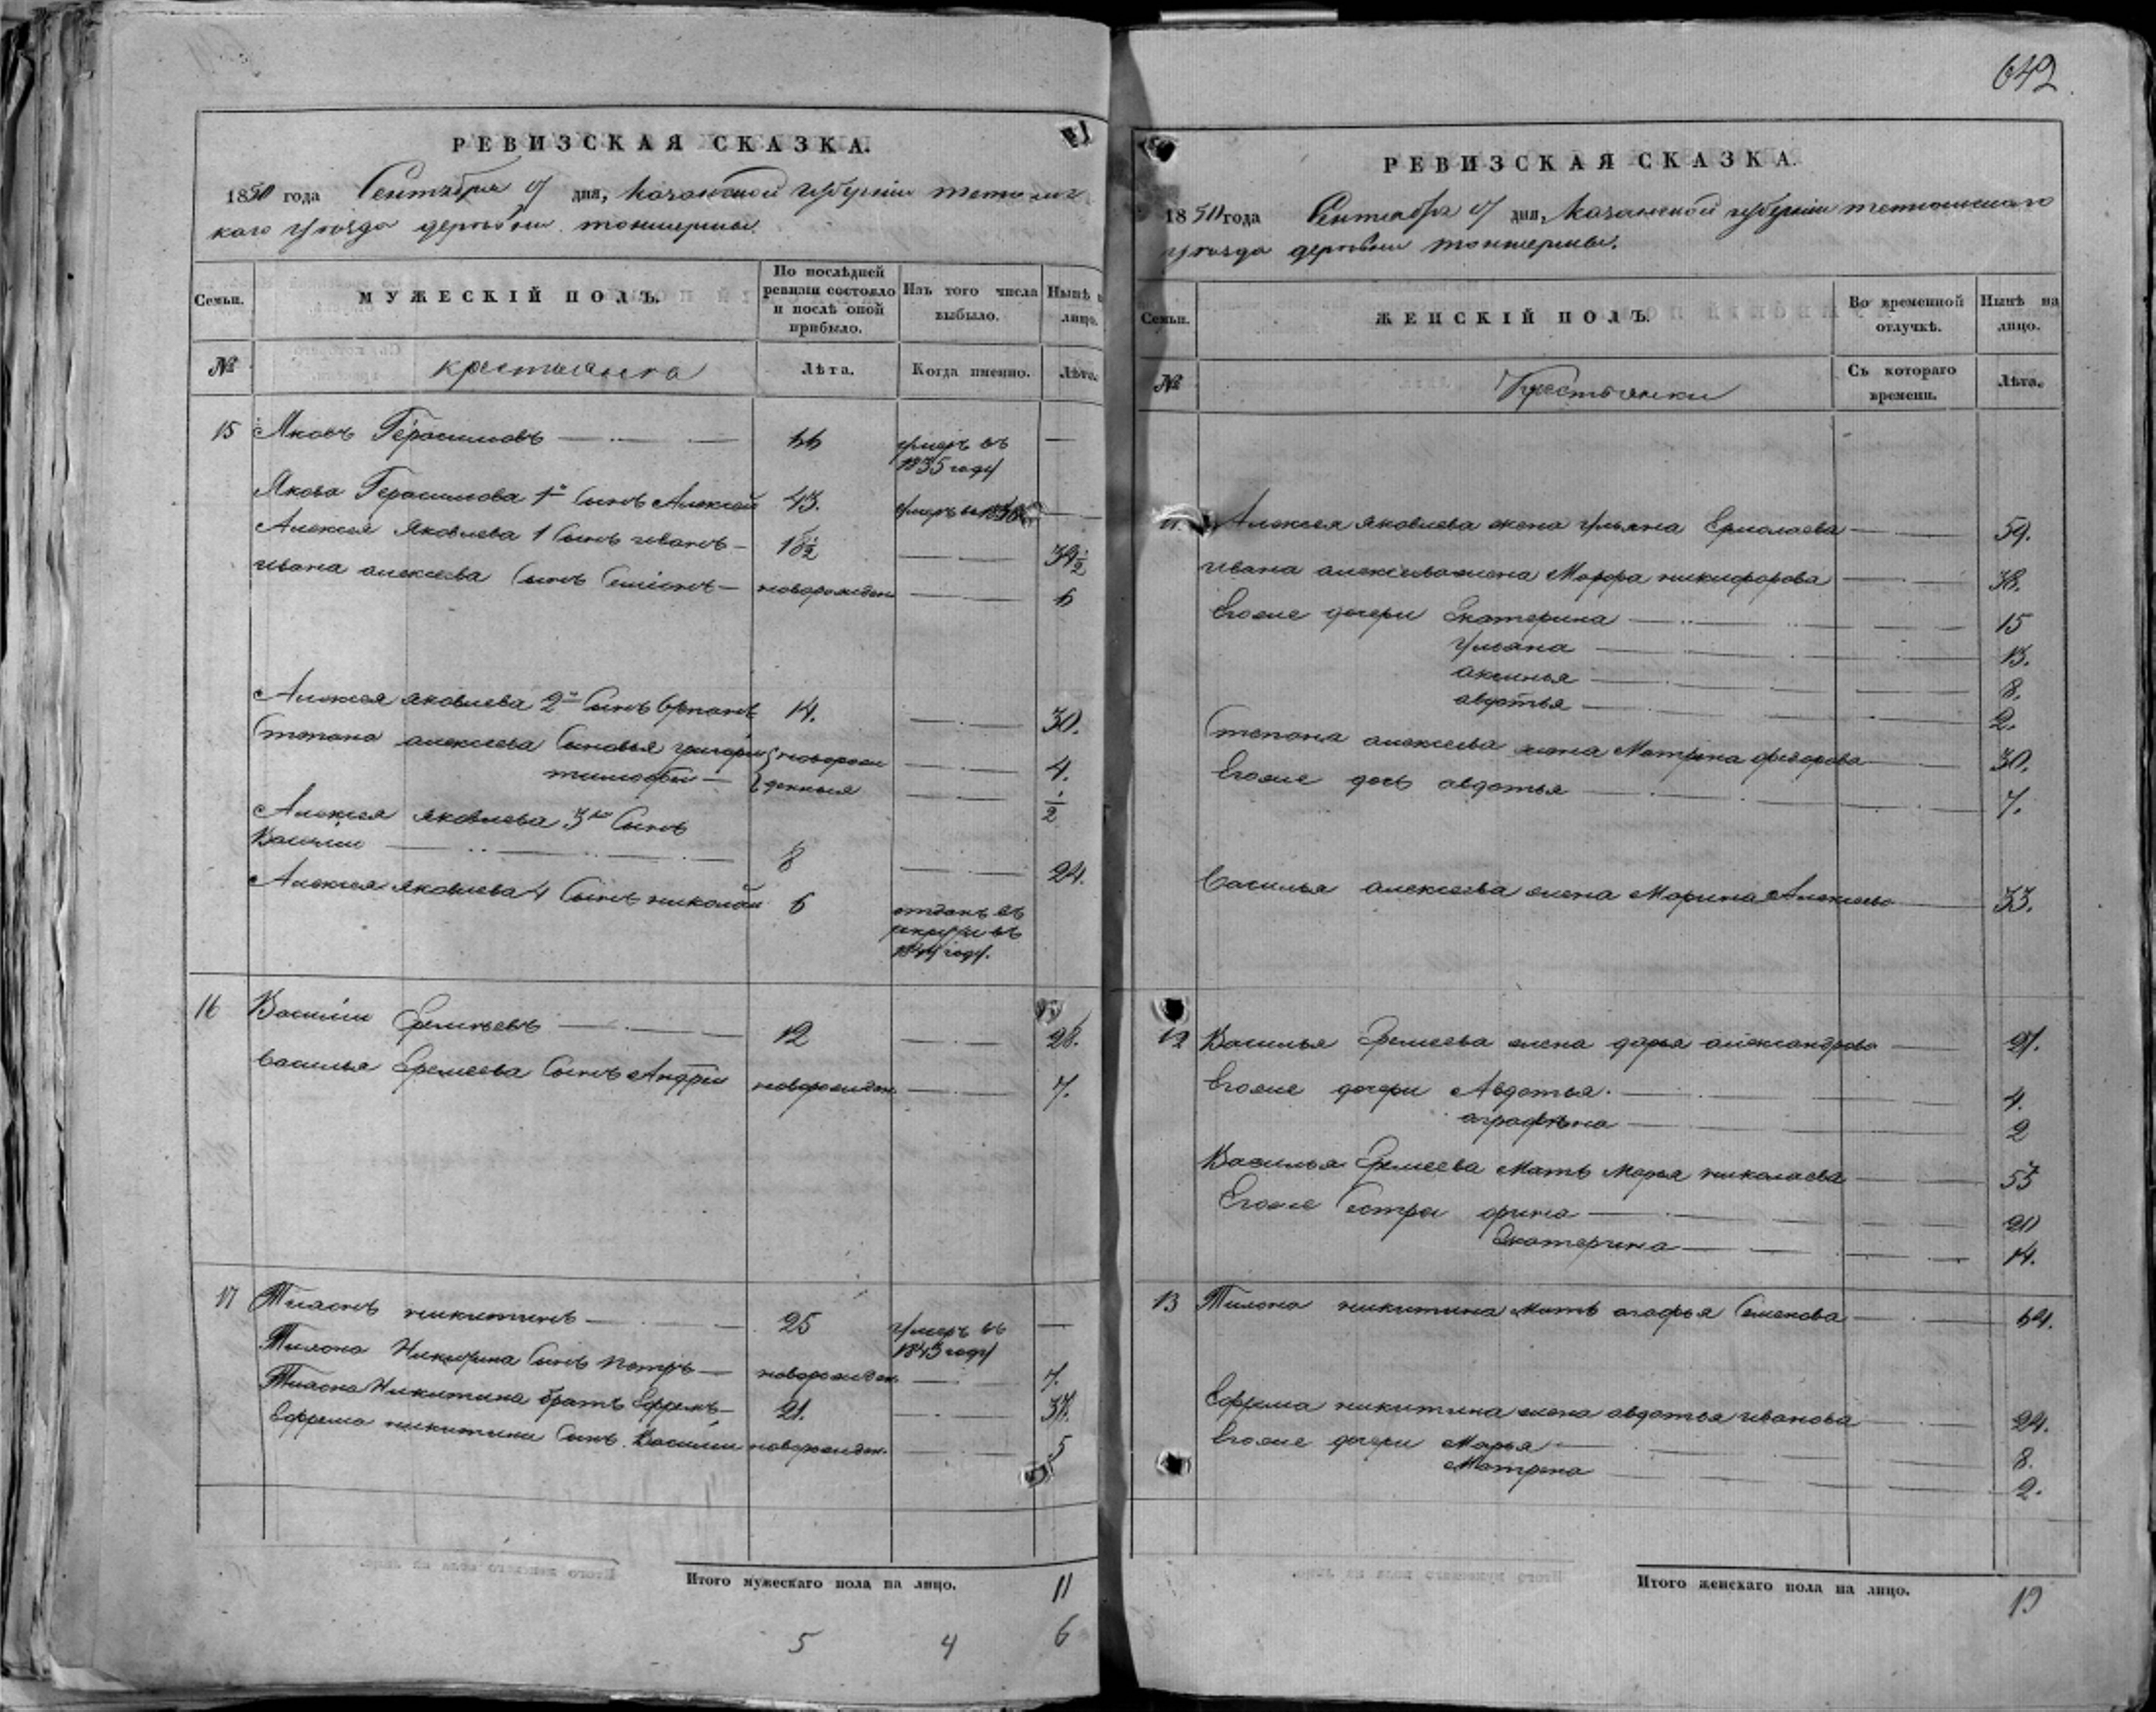 642
РЕВИЗСКАЯ СКАЗКА.
1850 года Сентября 9 дня, Казанской губернии тетюш
каго уѣзда деревни
Семьи.
МУЖЕСКІЙ ПОЛЪ.
По послѣдней ревизіи состояло и послѣ оной прибыло.
Изъ того числа выбыло.
Нынѣ на лицо.
№
крестьяне
Лѣта.
Когда именно.
Лѣта.
15 Яковъ Герасимовъ 66 умеръ въ
1835 году
Якова Герасимова 1й Сынъ Алексей 43. умеръ въ
Алексея Яковлева 1 Сынъ иванъ
ивана алексеева Сынъ Семіонъ новорожден 6
Алексея яковлева 2й Сынъ Степанъ 14. 30.
Степана алексеева Сыновья григори новорож 4.
тимофей денныя 1/2
Алексея яковлева 3й Сынъ
Василии 8 24.
Алексея яковлева 4 Сынъ николай 6 отданъ въ
рекруты въ
году.
16 Василии Еремеевъ 12 28.
василья Еремеева Сынъ Андрей новорожден. 7.
17 Тихонъ никитинъ 25 умеръ въ
1843 году
Тихона Никитина Сынъ петръ новорожден 7.
Тихона Никитина братъ Ефремъ 21. 37.
Ефрема никитина Сынъ Василии новорожден. 5
Итого мужескаго пола на лицо. 11
5 4 6
РЕВИЗСКАЯ СКАЗКА.
1850 года Сентября 9 дня, Казанской губернии тетюшскаго
уѣзда деревни
Семьи.
ЖЕНСКІЙ ПОЛЪ.
Во временной отлучкѣ.
Нынѣ на лицо.
№
Крестьянки
Съ котораго времени.
Лѣта.
Алексея яковлева жена ульяна Ермолаева 59.
ивана алексеева жена Марфа никифорова 38.
Егоже дочери Екатерина 15
ульяна 13.
аксинья 8.
авдотья 2.
Степана алексеева жена Матрена федорова 30.
Егоже дочь авдотья 7.
Василья алексеева жена Марина Алексеева 33.
12 Василья Еремеева жена дарья александрова 27.
Егоже дочери Авдотья. 4.
аграфѣна 2
Василья Еремеева мать марья николаева 55
Егоже Сестры орина 20
Екатерина 14.
13 Тихона никитина мать агафья Семенова 64.
Ефрема никитина жена авдотья иванова 24.
Егоже дочери Марья 8.
Матрена 2.
Итого женскаго пола на лицо. 19